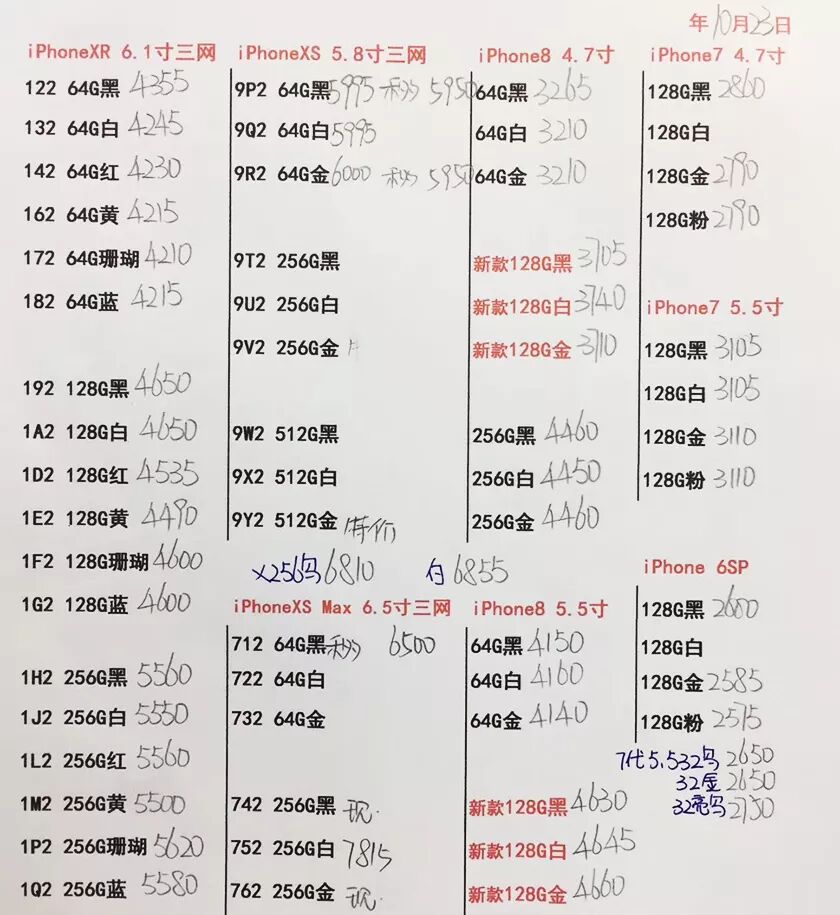 年10月23日
iPhoneXR 6.1寸三网
122 64G黑 4355
132 64G白 4245
142 64G红 4230
162 64G黄 4215
172 64G珊瑚 4210
182 64G蓝 4215
192 128G黑 4650
1A2 128G白 4650
1D2 128G红 4535
1E2 128G黄 4490
1F2 128G珊瑚 4600
1G2 128G蓝 4600
1H2 256G黑 5560
1J2 256G白 5550
1L2 256G红 5560
1M2 256G黄 5500
1P2 256G珊瑚 5620
1Q2 256G蓝 5580
iPhoneXS 5.8寸三网
9P2 64G黑 5995 秒 5950
9Q2 64G白 5995
9R2 64G金 6000 秒 5950
9T2 256G黑
9U2 256G白
9V2 256G金
9W2 512G黑
9X2 512G白
9Y2 512G金 特价
X256乌 6810 白 6855
iPhoneXS Max 6.5寸三网
712 64G黑 秒 6500
722 64G白
732 64G金
742 256G黑 现
752 256G白 7815
762 256G金 现
iPhone8 4.7寸
64G黑 3265
64G白 3210
64G金 3210
新款128G黑 3705
新款128G白 3740
新款128G金 3710
256G黑 4460
256G白 4450
256G金 4460
iPhone8 5.5寸
64G黑 4150
64G白 4160
64G金 4140
新款128G黑 4630
新款128G白 4645
新款128G金 4660
iPhone7 4.7寸
128G黑 2860
128G白
128G金 2790
128G粉 2790
iPhone7 5.5寸
128G黑 3105
128G白 3105
128G金 3110
128G粉 3110
iPhone 6SP
128G黑 2600
128G白
128G金 2585
128G粉 2575
7代5.532乌 2650
32金 2650
32亮乌 2750